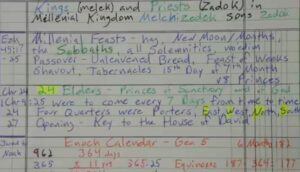 Kings (melek) and Priests (Zadok) in
Millenial Kingdom Melchizedek Sons Zadok
Millenial Feasts - hag, New Moon/Months,
the Sabbaths, all Solemnities,
Passover - Unleavened Bread, Feast of Weeks
Shavout, Tabernacles 15th Day of 7th Month
24 Elders - Princes of Sanctuary and
1Chr 9:25 were to come every 7 Days from time to time
24 Four Quarters were Porters, East, West, North, South
Opening - Key to the House of David
Enoch Calendar - Gen 5 6 Month 182
Noah 962 364 days
365 8 11 yrs 365.25 Equinoxes 187 364 177